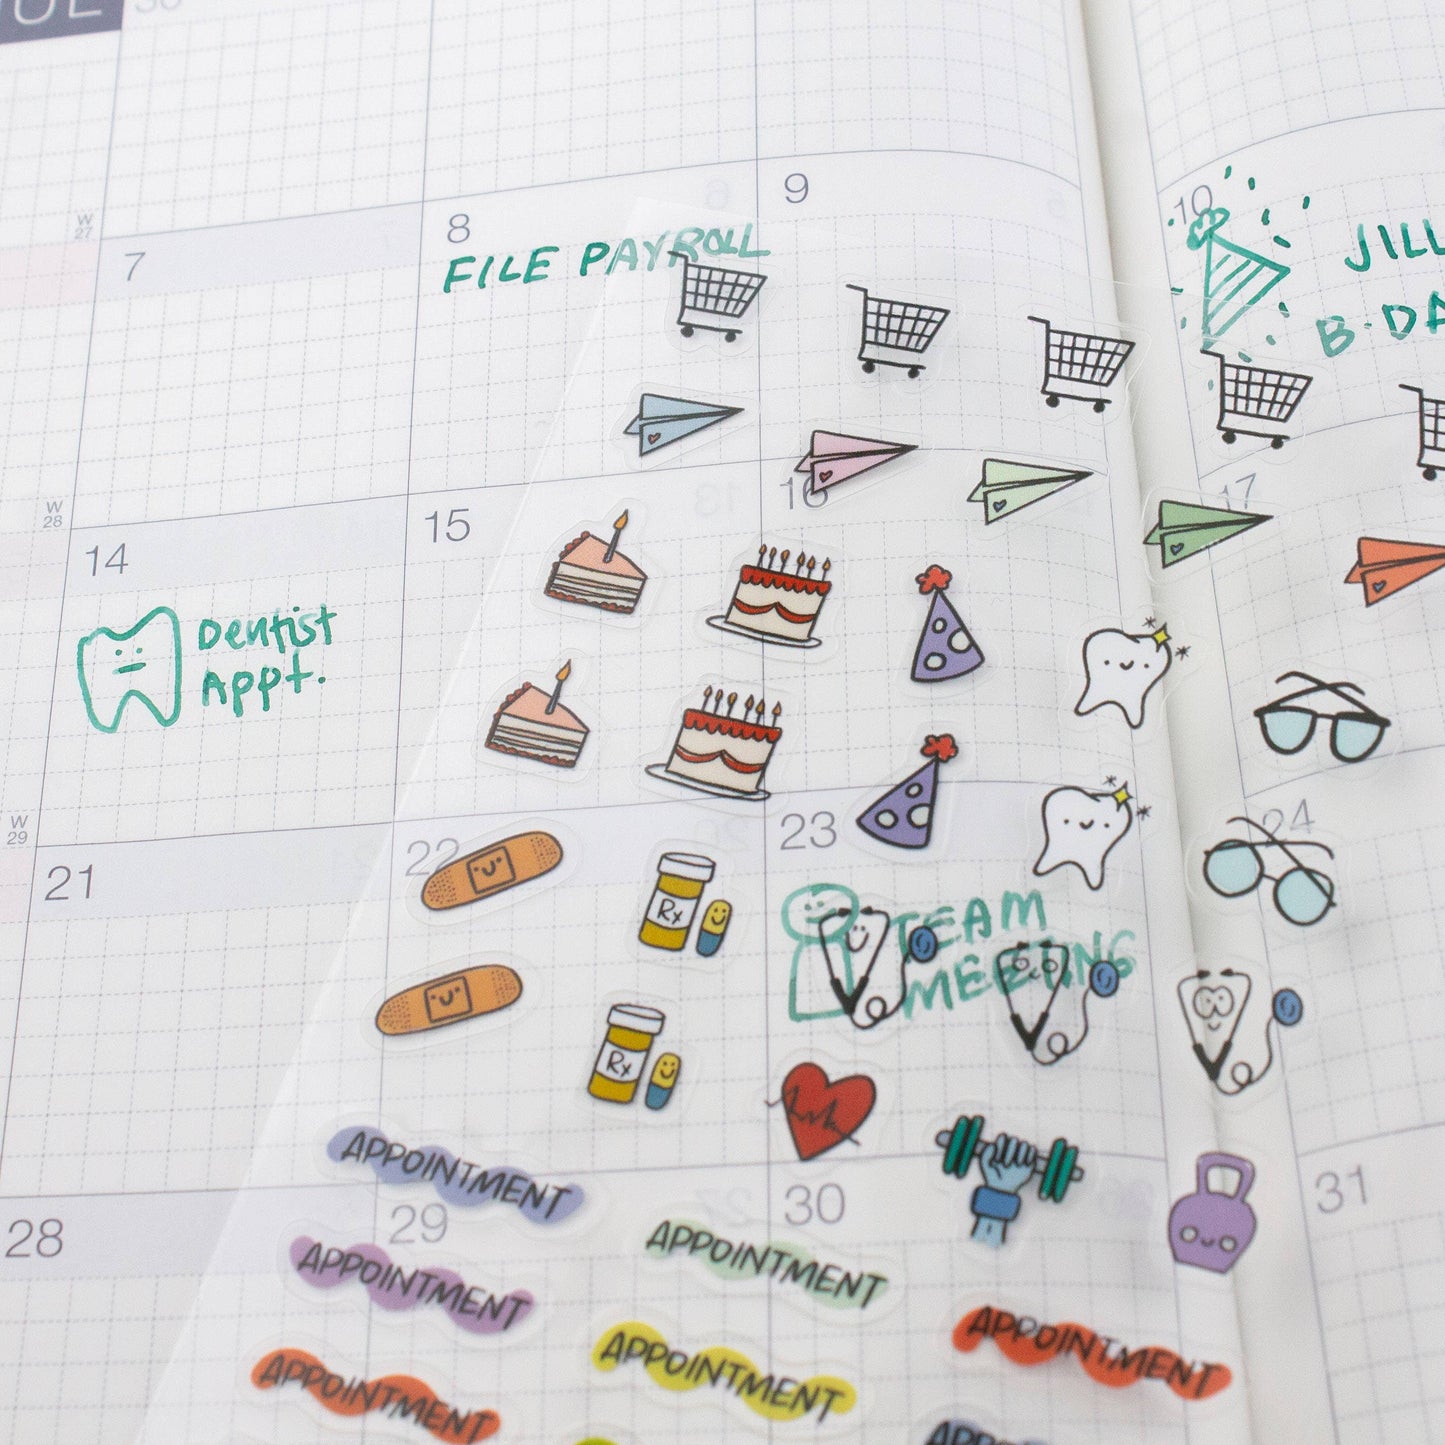 UE
30
W
27
7
8
FILE PAYROLL
9
10
JILL
B-DA
W
28
14
Dentist
Appt.
15
16
17
W
29
21
22
Rx
23
TEAM
MEETING
24
Rx
28
29
30
31
APPOINTMENT
APPOINTMENT
APPOINTMENT
APPOINTMENT
APPOINTMENT
APPOINTMENT